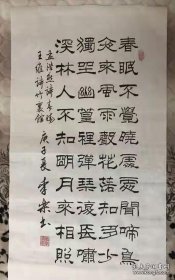 春眠不覺曉處處聞啼鳥
夜來風雨聲花落知多少
獨坐幽篁裡彈琴復長嘯
深林人不知明月來相照
孟浩然詩春曉
王維詩竹裏館 庚子夏李樂书